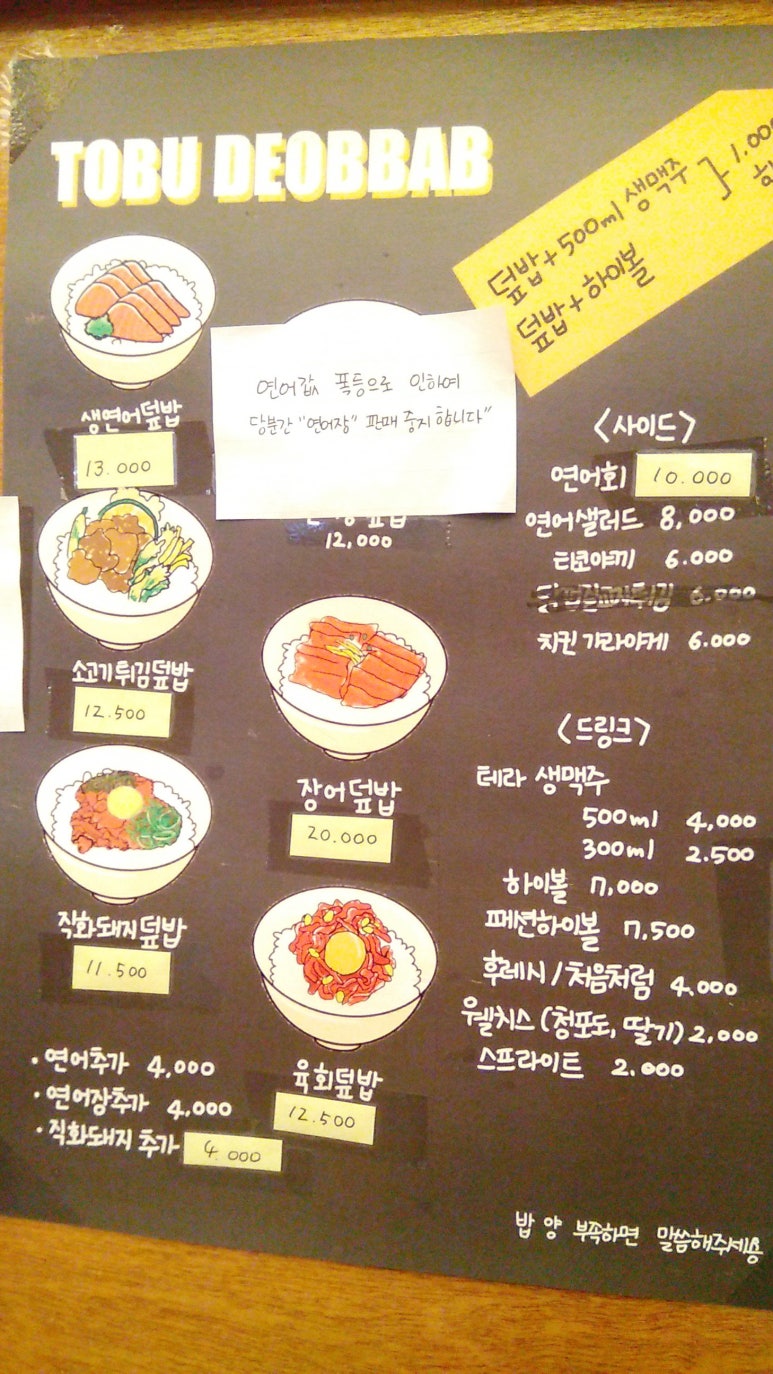 TOBU DEOBBAB
덮밥+500ml 생맥주 } 1.000
덮밥+하이볼
생연어덮밥
13.000
연어값 폭등으로 인하여
당분간 "연어장" 판매 중지합니다"
덮밥
12,000
소고기튀김덮밥
12.500
장어덮밥
20.000
직화돼지덮밥
11.500
육회덮밥
12.500
· 연어추가 4,000
· 연어장추가 4,000
· 직화돼지 추가 4.000
<사이드>
연어회 10.000
연어샐러드 8,000
타코야끼 6.000
6.000
치킨 가라아게 6.000
<드링크>
테라 생맥주
500ml 4,000
300ml 2.500
하이볼 7,000
패션하이볼 7,500
후레시/처음처럼 4.000
웰치스 (청포도, 딸기) 2,000
스프라이트 2.000
밥 양 부족하면 말씀해주세용